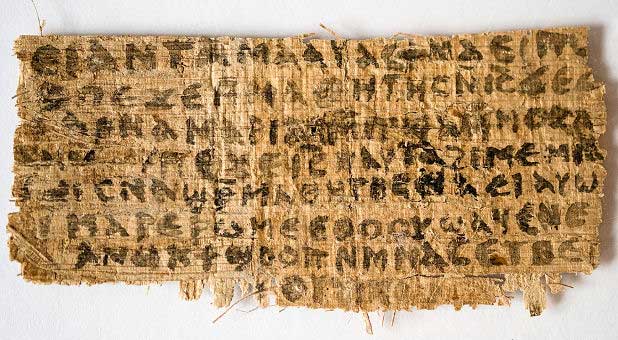 ⲉⲓ ⲁⲛ ⲧⲁⲙⲁⲁⲩ ⲁⲥϯ ⲛⲁⲉⲓ ⲡⲱ
ⲡⲉϫⲉ ⲙⲙⲁⲑⲏⲧⲏⲥ ⲛⲓⲥ ϫⲉ ⲥ
ⲁⲣⲛⲁ ⲙⲁⲣⲓⲁⲙ ⲙⲡϣⲁ ⲙⲙⲟⲥ ⲁ
ⲡⲉϫⲉ ⲓⲥ ⲛⲁⲩ ⲧⲁϩⲓⲙⲉ ⲙⲛ
ⲥⲛⲁϣⲣⲙⲁⲑⲏⲧⲏⲥ ⲛⲁⲉⲓ ⲁⲩⲱ
ⲓ ⲙⲁⲣⲉⲣⲱⲙⲉ ⲉⲑⲟⲟⲩ ϣⲁϥⲉ ⲛⲉ
ⲁⲛⲟⲕ ϯϣⲟⲟⲡ ⲛⲙⲙⲁⲥ ⲉⲧⲃⲉ ⲡ